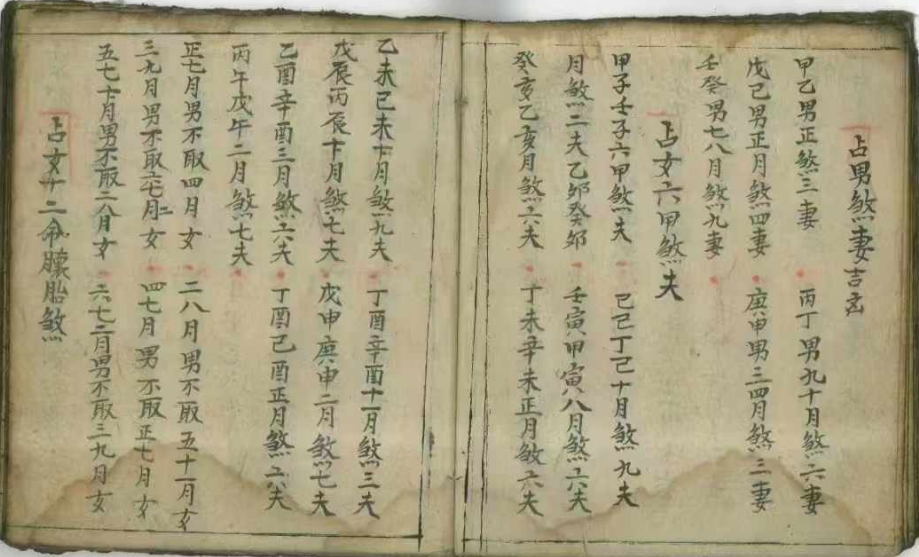 占男煞妻吉凶
甲乙男正煞三妻 丙丁男九十月煞六妻
戊己男正月煞四妻 庚申男三四月煞三妻
壬癸男七八月煞九妻
占女六甲煞夫
甲子壬子六甲煞夫 己己丁己十月煞九夫
月煞二夫乙卯癸卯 壬寅甲寅八月煞六夫
癸亥乙亥月煞六夫 丁未辛未正月煞六夫
乙未己未十月煞九夫 丁酉辛酉十一月煞三夫
戊辰丙辰十月煞七夫 戊申庚申二月煞七夫
乙酉辛酉三月煞六夫 丁酉己酉正月煞六夫
丙午戊午二月煞七夫
正七月男不取四月女 二八月男不取五十一月女
三九月男不取 月女 四七月男不取正七月女
五七十月男不取二八月女 六七二月男不取三九月女
占女十二命 胎煞